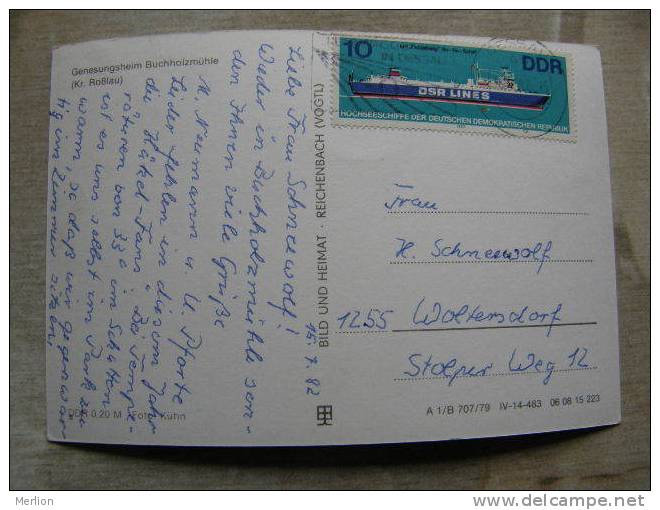 Genesungsheim Buchholzmühle
(Kr. Roßlau)
15. 7. 82
Liebe Frau Schneewolf!
Wieder in Buchholzmühle sen-
den Ihnen viele Grüße
M. Neumann u. U. Pforte
Leider fehlen in diesem Jahr
die "Häkel-Fans". Bei Tempe-
raturen von 33° im Schatten
ist es uns selbst im Park zu
warm, so daß wir gegenwär-
tig im Zimmer sitzen.
DDR 0,20 M Foto: Kuhn
BILD UND HEIMAT · REICHENBACH (VOGTL)
10
DDR
DSR LINES
HOCHSEESCHIFFE DER DEUTSCHEN DEMOKRATISCHEN REPUBLIK
Frau
H. Schneewolf
1255 Woltersdorf
Stolper Weg 12
A 1/B 707/79 IV-14-483 06 08 15 223
Merlion
www.delcampe.net